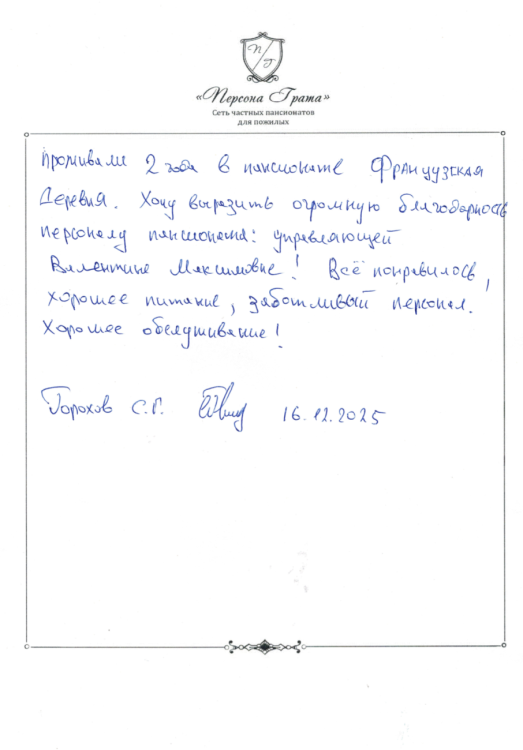 П Г
«Персона Грата»
Сеть частных пансионатов
для пожилых
Проживали 2 года в пансионате Французская
Деревня. Хочу выразить огромную благодарность
персоналу пансионата: управляющей
Валентине Максимовне! Всё понравилось,
хорошее питание, заботливый персонал.
Хорошее обслуживание!
Горохов С.Г. 16.12.2025